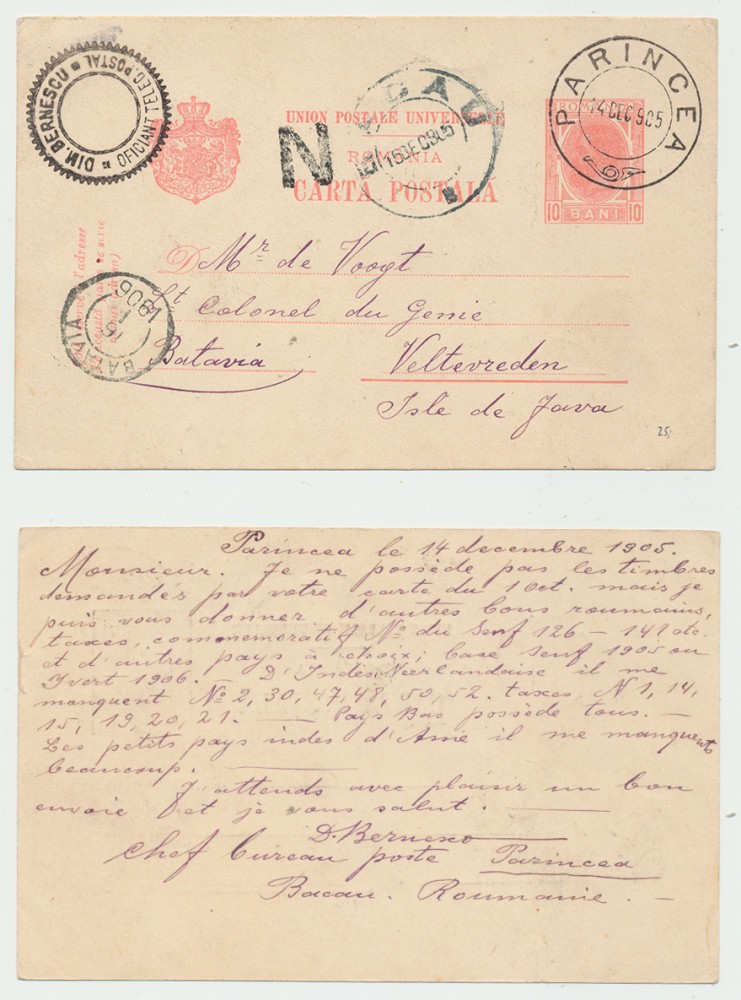 DIM. BERNESCU
OFICIANT TELEG. POSTAL
UNION POSTALE UNIVERSELLE
ROMANIA
CARTA POSTALĂ
N
BACAU
15 DEC 905
PARINCEA
14 DEC 905
ROMANIA
10 BANI 10
D Mr. de Voogt
Lt Colonel du Genie
Batavia Veltevreden
Isle de Java
25,
BATAVIA
1906
l'adresse
Parincea le 14 decembre 1905.
Monsieur. Je ne possède pas les timbres
demandés par votre carte du 1 Oct. mais je
puis vous donner d'autres bons roumains,
taxes, commemoratif No du Senf 126 – 141 etc.
et d'autres pays à choix; base Senf 1905 ou
Yvert 1906. – D'Indes Neerlandaise il me
manquent No 2, 30, 47, 48, 50, 52. taxes. N 1, 14,
15, 19, 20, 21. — Pays Bas possède tous. –
Les petits pays indes d'Asie il me manquents
beaucoup. —
J'attends avec plaisir un bon
envoie et je vous salut. —
D. Bernesco
Chef bureau poste Parincea
Bacau. Roumanie. –